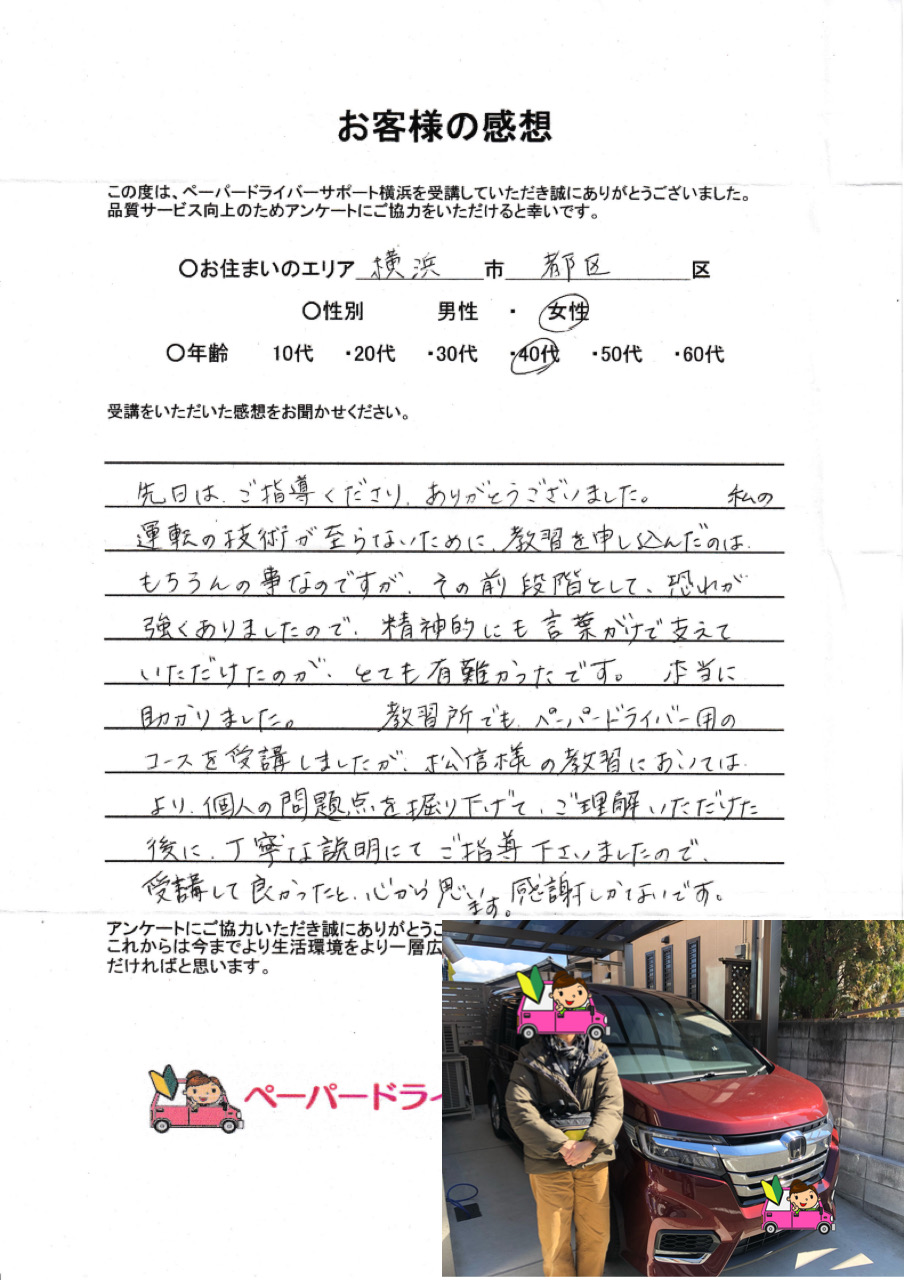 お客様の感想
この度は、ペーパードライバーサポート横浜を受講していただき誠にありがとうございました。
品質サービス向上のためアンケートにご協力をいただけると幸いです。
〇お住まいのエリア 横浜 市 都区 区
〇性別 男性 ・ 女性
〇年齢 10代 ・20代 ・30代 ・40代 ・50代 ・60代
受講をいただいた感想をお聞かせください。
先日は、ご指導くださり、ありがとうございました。 私の
運転の技術が至らないために、教習を申し込んだのは
もちろんの事なのですが、その前段階として、恐れが
強くありましたので、精神的にも言葉がけで支えて
いただけたのが、とても有難かったです。 本当に
助かりました。 教習所でも、ペーパードライバー用の
コースを受講しましたが、松信様の教習においては、
より、個人の問題点を掘り下げて、ご理解いただけた
後に、丁寧な説明にてご指導下さいましたので、
受講して良かったと、心から思います。感謝しかないです。
アンケートにご協力いただき誠にありがとうご
これからは今までより生活環境をより一層広
だければと思います。
ペーパードライ